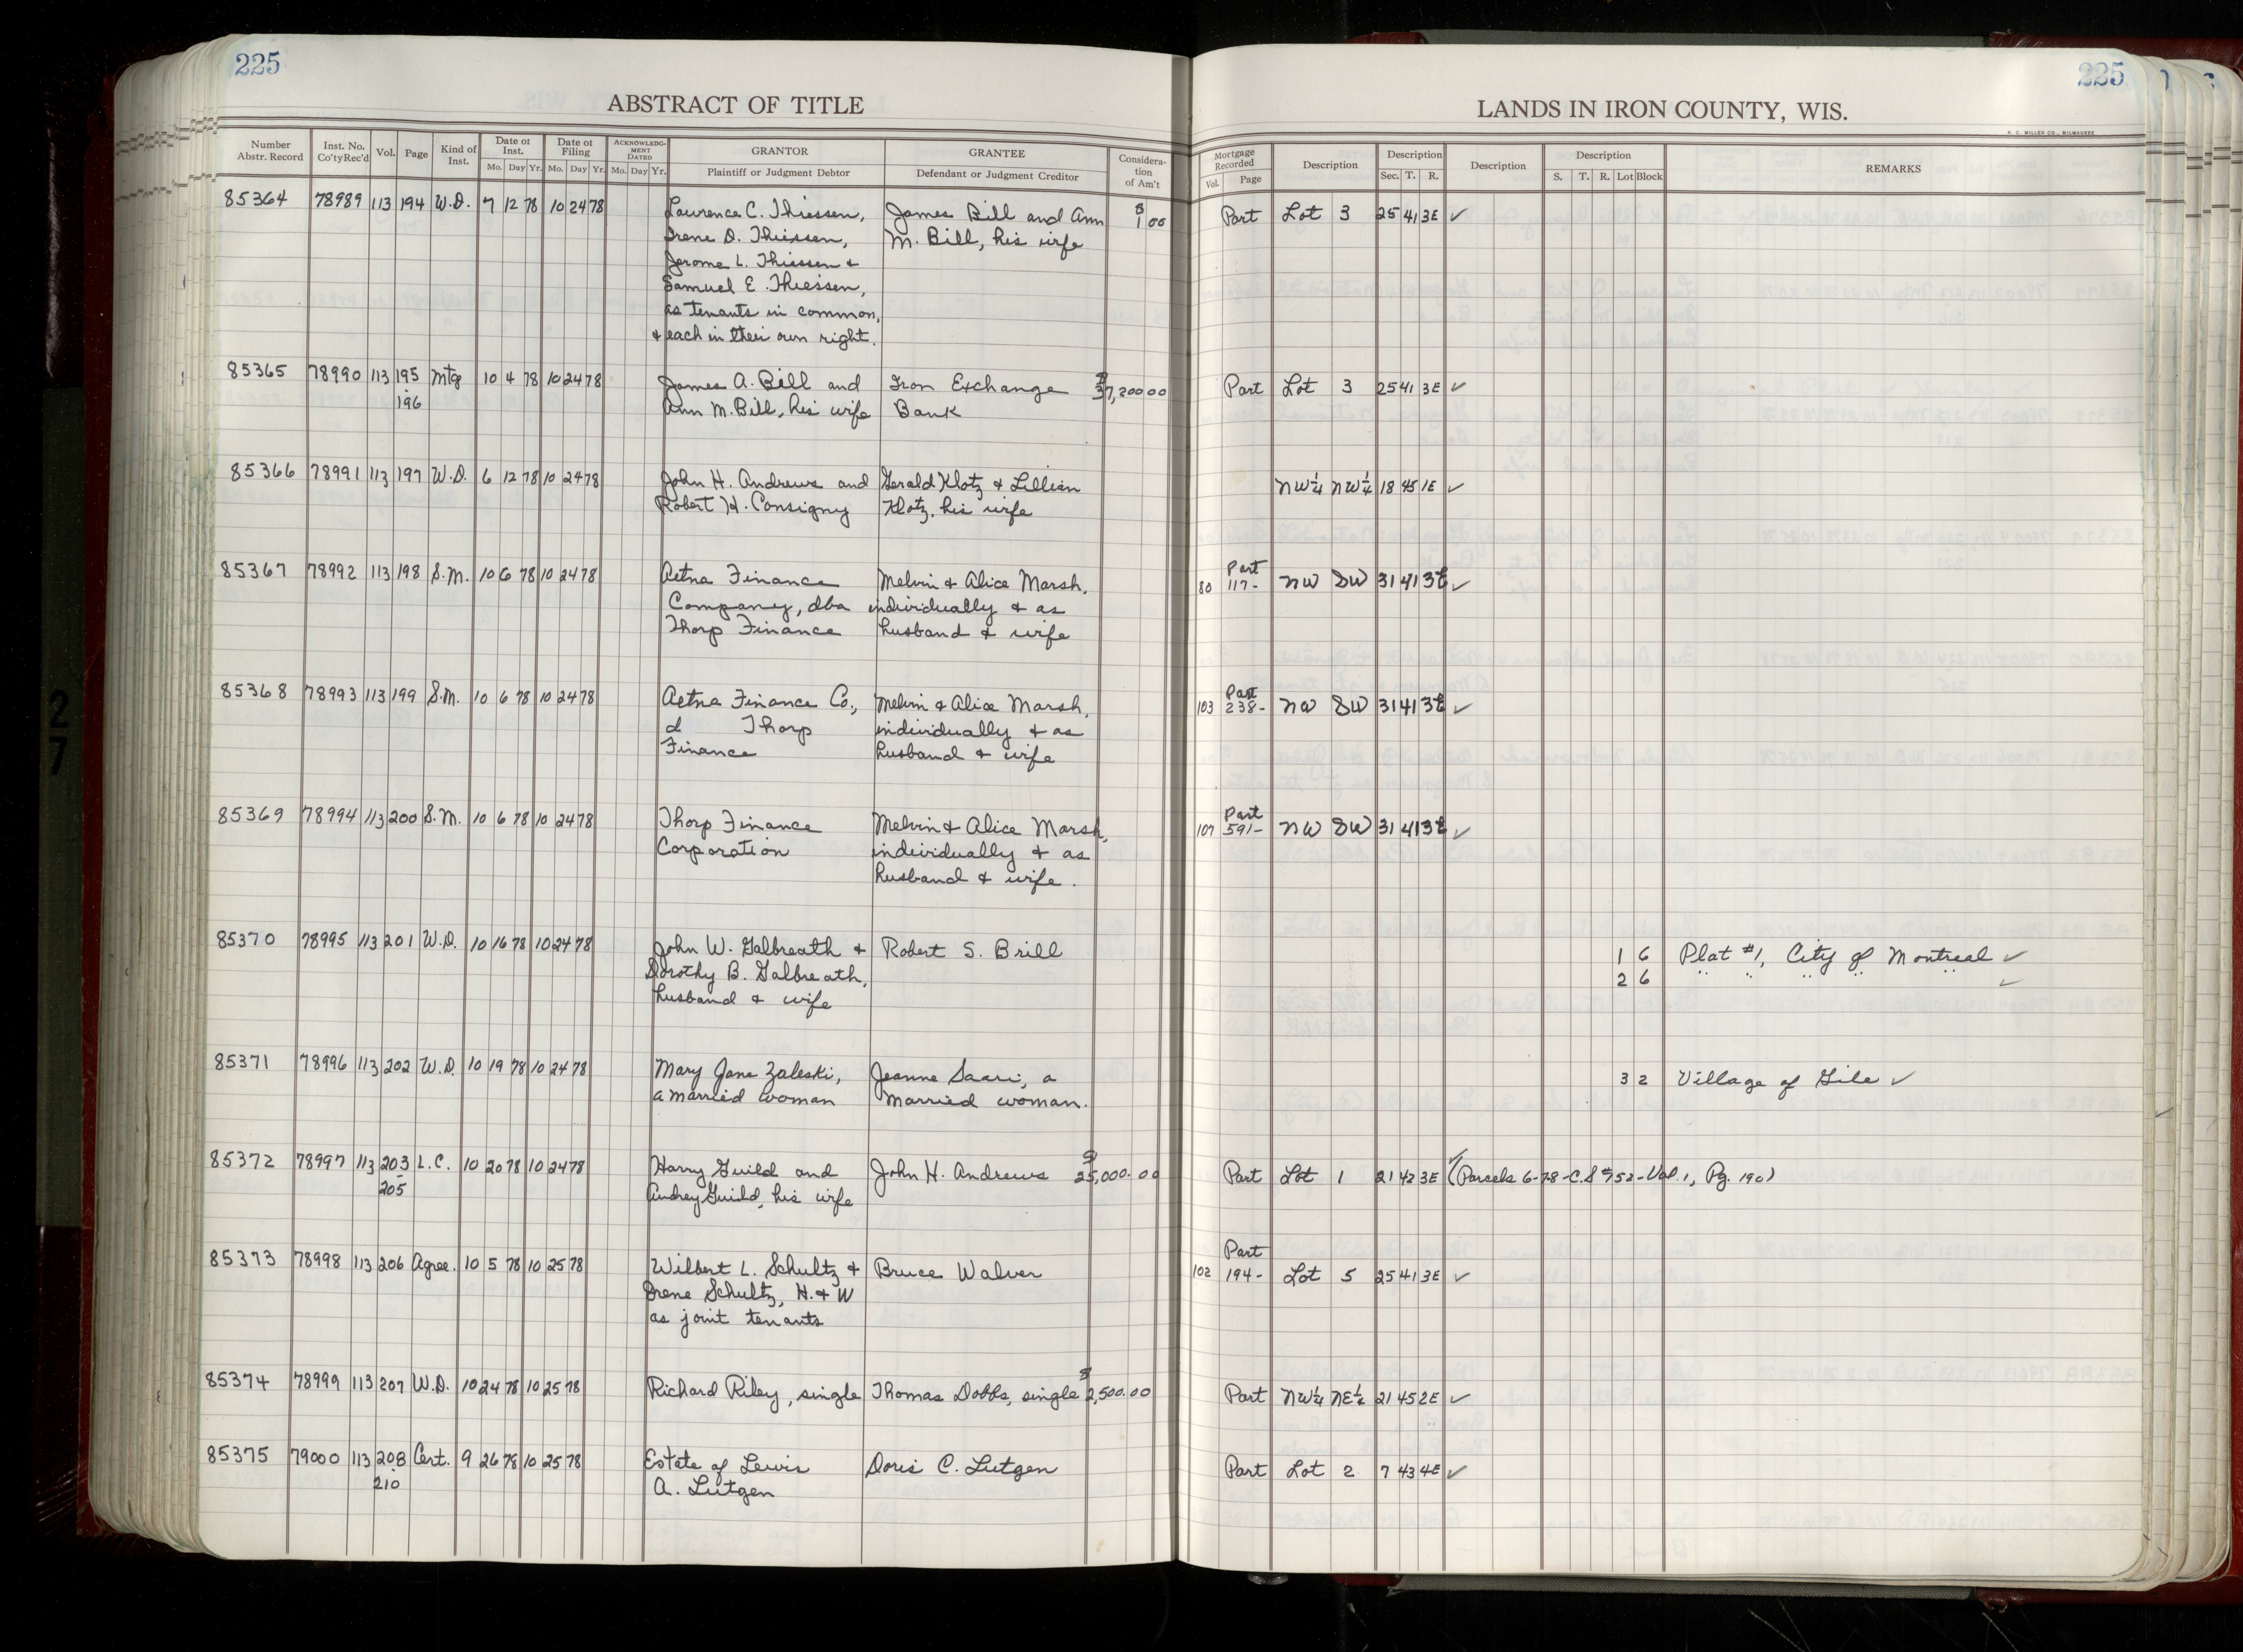 225
225
ABSTRACT OF TITLE
LANDS IN IRON COUNTY, WIS.
H. C. MILLER CO., MILWAUKEE
Number Abstr. Record | Inst. No. Co'ty Rec'd | Vol. | Page | Kind of Inst. | Date of Inst. Mo. Day Yr. | Date of Filing Mo. Day Yr. | ACKNOWLEDGMENT DATED Mo. Day Yr. | GRANTOR Plaintiff or Judgment Debtor | GRANTEE Defendant or Judgment Creditor | Consideration of Am't | Mortgage Recorded Vol. Page | Description | Description Sec. T. R. | Description | Description S. T. R. Lot Block | REMARKS
85364 78989 113 194 W.D. 7 12 78 10 24 78 Lawrence C. Thiessen, James Bill and Ann $1 00 Part Lot 3 25 41 3E ✓
Irene D. Thiessen, M. Bill, his wife
Jerome L. Thiessen &
Samuel E. Thiessen,
as tenants in common,
& each in their own right.
85365 78990 113 195 Mtg 10 4 78 10 24 78 James A. Bill and Iron Exchange $37,200 00 Part Lot 3 25 41 3E ✓
- 196 Ann M. Bill, his wife Bank
85366 78991 113 197 W.D. 6 12 78 10 24 78 John H. Andrews and Gerald Klotz & Lillian NW¼ NW¼ 18 45 1E ✓
Robert H. Consigny Klotz, his wife
85367 78992 113 198 S.M. 10 6 78 10 24 78 Aetna Finance Melvin & Alice Marsh, 80 Part 117- NW SW 31 41 3E ✓
Company, dba individually & as
Thorp Finance husband & wife
85368 78993 113 199 S.M. 10 6 78 10 24 78 Aetna Finance Co., Melvin & Alice Marsh, 103 Part 238- NW SW 31 41 3E ✓
d Thorp individually & as
Finance husband & wife
85369 78994 113 200 S.M. 10 6 78 10 24 78 Thorp Finance Melvin & Alice Marsh, 107 Part 591- NW SW 31 41 3E ✓
Corporation individually & as
husband & wife.
85370 78995 113 201 W.D. 10 16 78 10 24 78 John W. Galbreath & Robert S. Brill 1 6 Plat #1, City of Montreal ✓
Dorothy B. Galbreath, 2 6 " " " " " ✓
husband & wife
85371 78996 113 202 W.D. 10 19 78 10 24 78 Mary Jane Zaleski, Jeanne Saari, a 3 2 Village of Gile ✓
a married woman married woman.
85372 78997 113 203 L.C. 10 20 78 10 24 78 Harry Guild and John H. Andrews $25,000.00 Part Lot 1 21 42 3E ✓ (Parcels 6-7-8-C.S #752-Vol. 1, Pg. 190)
- 205 Audrey Guild, his wife
85373 78998 113 206 Agree. 10 5 78 10 25 78 Wilbert L. Schultz & Bruce Walver 102 Part 194- Lot 5 25 41 3E ✓
Irene Schultz, H. & W
as joint tenants
85374 78999 113 207 W.D. 10 24 78 10 25 78 Richard Riley, single Thomas Dobbs, single $2,500.00 Part NW¼ NE¼ 21 45 2E ✓
85375 79000 113 208 Cert. 9 26 78 10 25 78 Estate of Lewis Doris C. Lutgen Part Lot 2 7 43 4E ✓
- 210 A. Lutgen
27